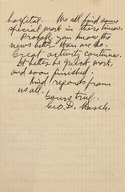 hospital. We all find some
special work in these times.
Probably you know the
news better than we do.
Great activity continues.
It better be quick work,
and soon finished.
Kind regards from
us all.
Yours truly,
Geo. D. Marsh.